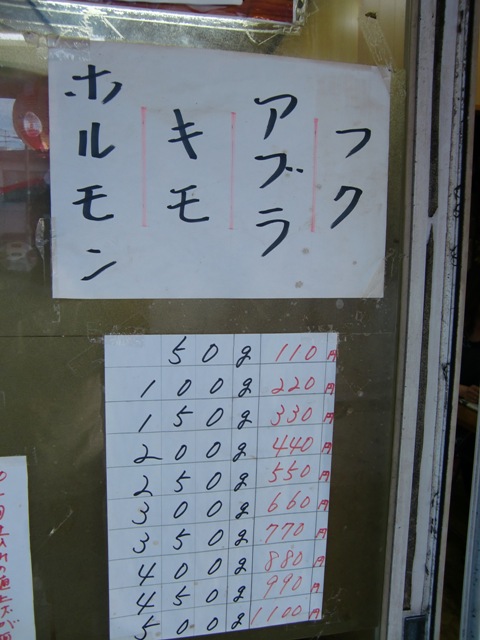 フク
アブラ
キモ
ホルモン
50g 110円
100g 220円
150g 330円
200g 440円
250g 550円
300g 660円
350g 770円
400g 880円
450g 990円
500g 1100円